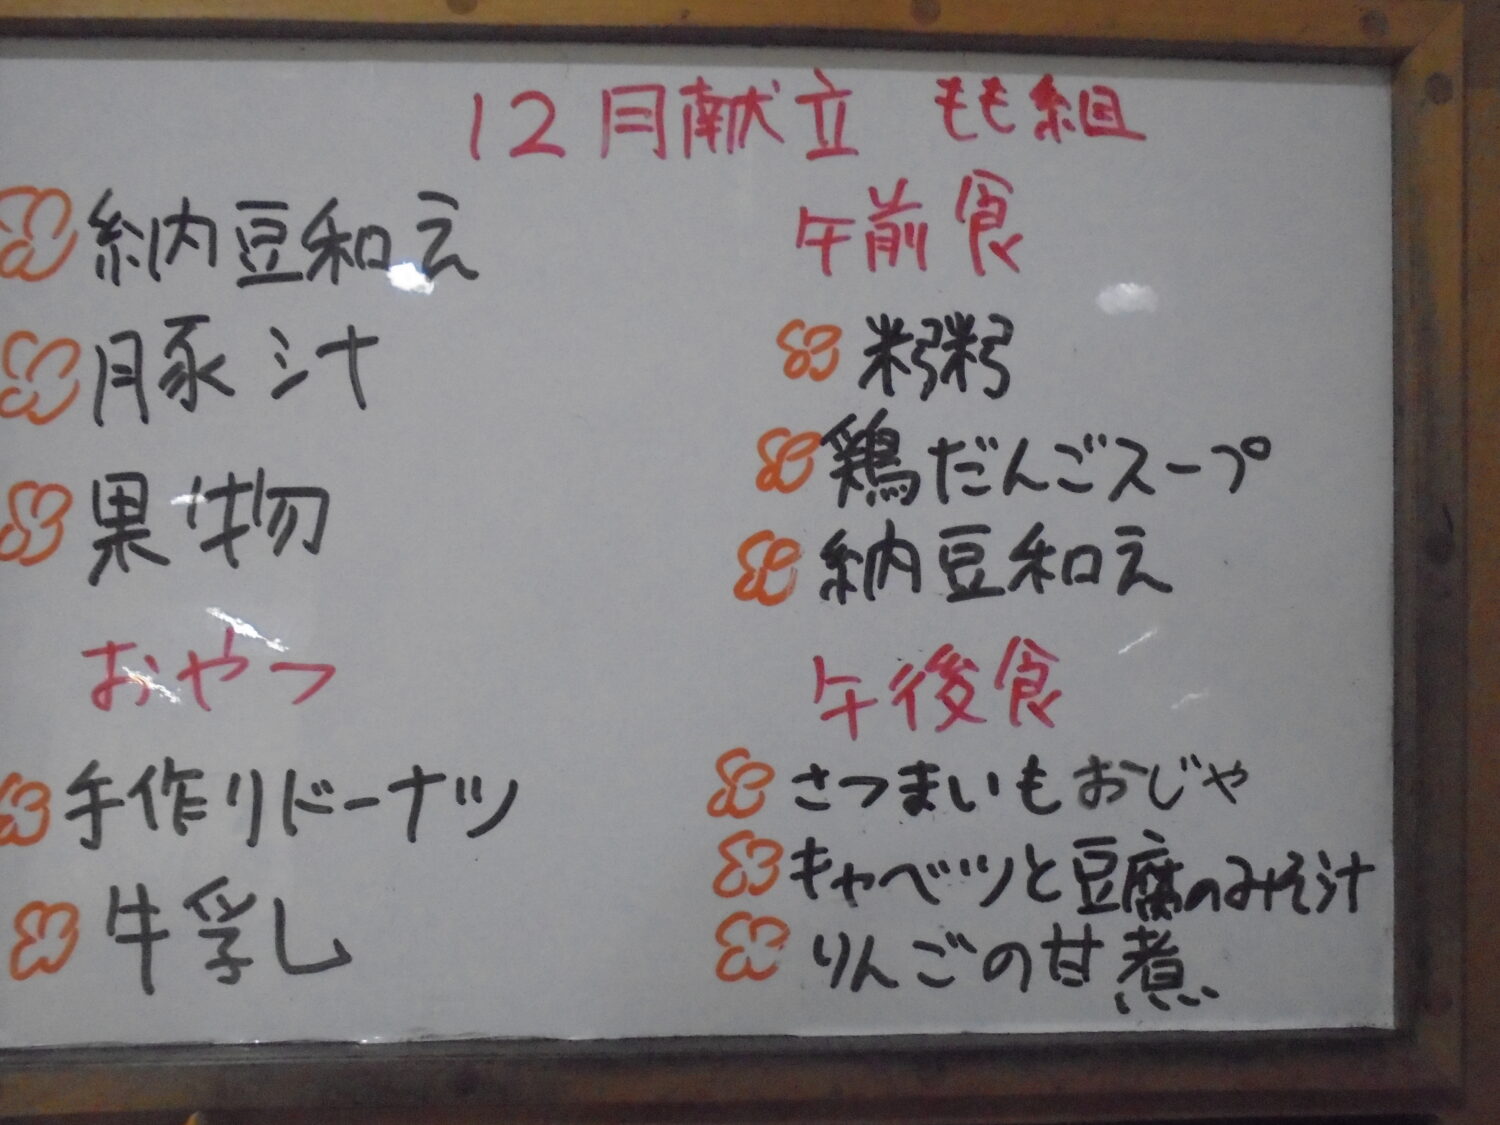 12月献立 もも組
納豆和え
豚汁
果物
おやつ
手作りドーナツ
牛乳
午前食
鶏だんごスープ
納豆和え
午後食
さつまいもおじや
キャベツと豆腐のみそ汁
りんごの甘煮